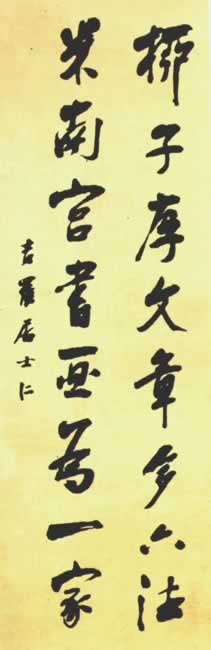 柳子厚文章多六法
米南宫書画為一家
吉羅居士仁